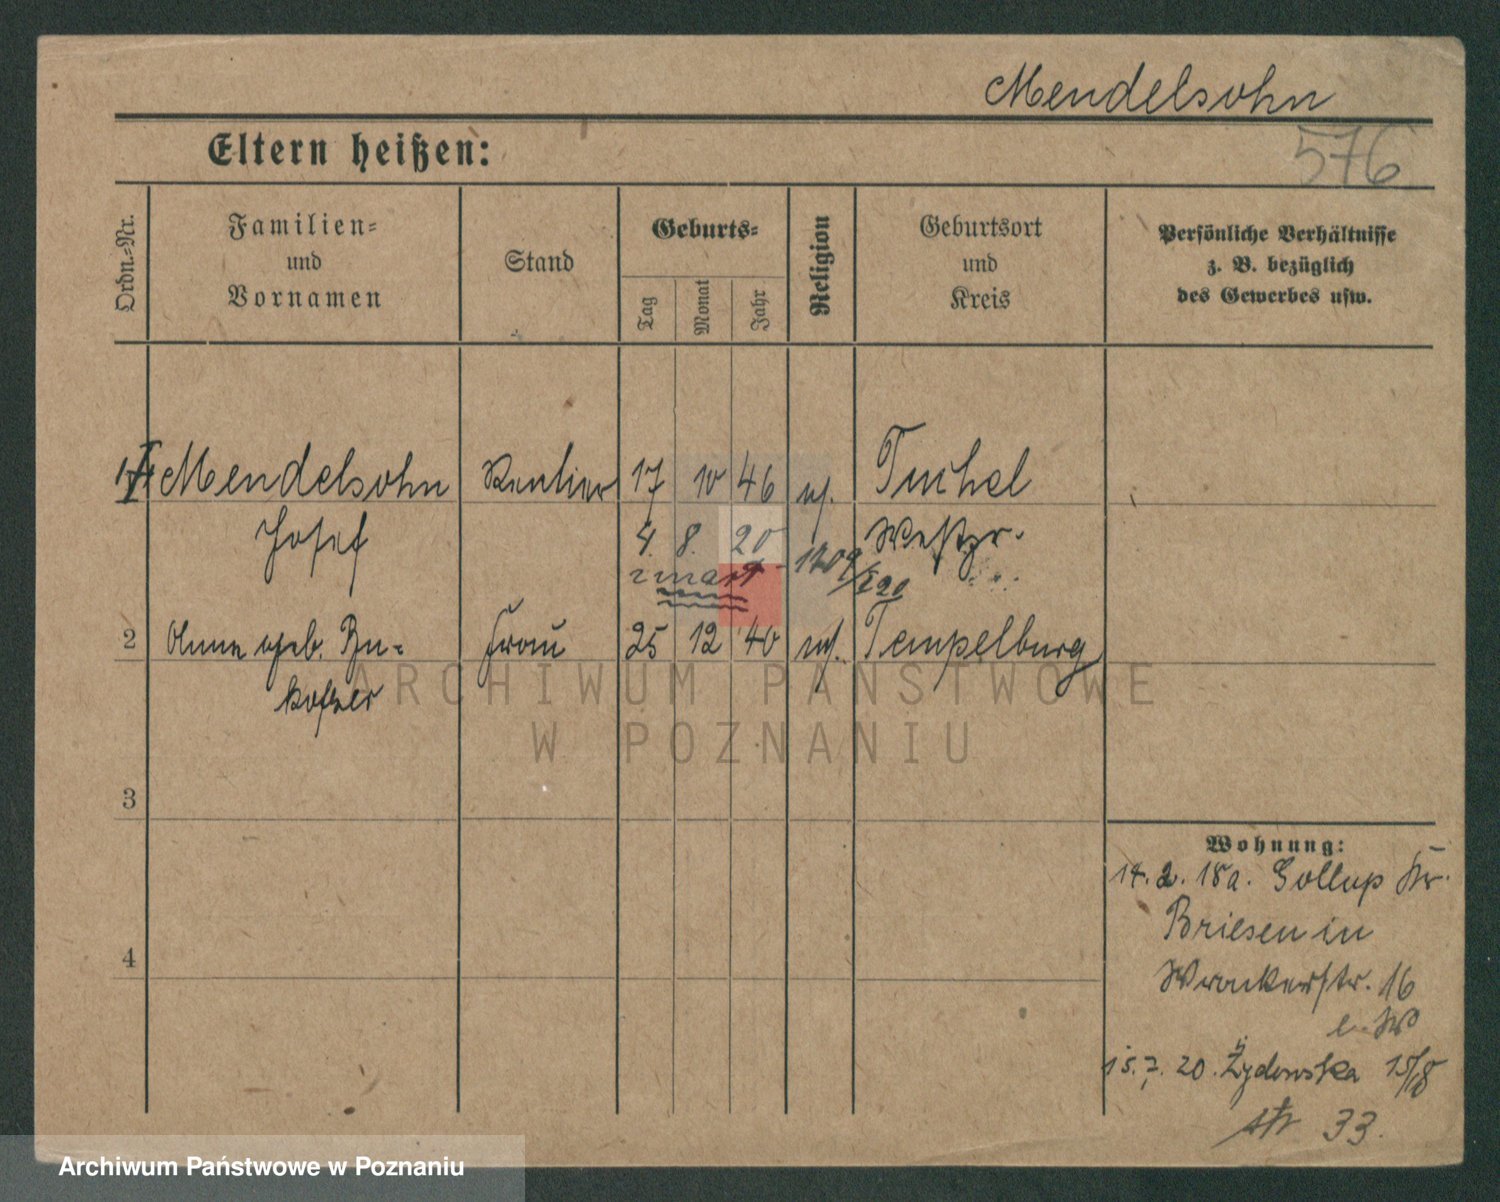 Mendelsohn
576
Eltern heißen:
Ordn.=Nr.
Familien=
und
Vornamen
Stand
Geburts=
Tag
Monat
Jahr
Religion
Geburtsort
und
Kreis
Persönliche Verhältnisse
z. B. bezüglich
des Gewerbes usw.
1 Mendelsohn Rentier 17 10 46 Tuchel
Josef 4. 8. 20 Westpr.
zmarł
2 geb. Frau 25 12 40 Tempelburg
3
4
Wohnung:
14. 2. 18 a. Gollup Kr.
Briesen in
Wronkerstr. 16
15. 7. 20. Żydowska 15/18
str 33.
ARCHIWUM PAŃSTWOWE
W POZNANIU
Archiwum Państwowe w Poznaniu